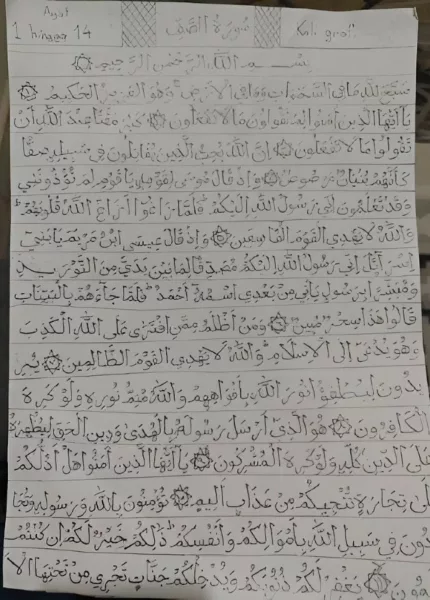 Ayat
1 hingga 14
سُورَةُ الصَّفِّ
Kaligrafi
بِسْــــمِ اللَّهِ الرَّحْمَٰنِ الرَّحِيمِ
سَبَّحَ لِلَّهِ مَا فِي السَّمَاوَاتِ وَمَا فِي الْأَرْضِ وَهُوَ الْعَزِيزُ الْحَكِيمُ
يَا أَيُّهَا الَّذِينَ آمَنُوا لِمَ تَقُولُونَ مَا لَا تَفْعَلُونَ كَبُرَ مَقْتًا عِنْدَ اللَّهِ أَنْ
تَقُولُوا مَا لَا تَفْعَلُونَ إِنَّ اللَّهَ يُحِبُّ الَّذِينَ يُقَاتِلُونَ فِي سَبِيلِهِ صَفًّا
كَأَنَّهُمْ بُنْيَانٌ مَرْصُوصٌ وَإِذْ قَالَ مُوسَى لِقَوْمِهِ يَا قَوْمِ لِمَ تُؤْذُونَنِي
وَقَدْ تَعْلَمُونَ أَنِّي رَسُولُ اللَّهِ إِلَيْكُمْ فَلَمَّا زَاغُوا أَزَاغَ اللَّهُ قُلُوبَهُمْ
وَاللَّهُ لَا يَهْدِي الْقَوْمَ الْفَاسِقِينَ وَإِذْ قَالَ عِيسَى ابْنُ مَرْيَمَ يَا بَنِي
إِسْرَائِيلَ إِنِّي رَسُولُ اللَّهِ إِلَيْكُمْ مُصَدِّقًا لِمَا بَيْنَ يَدَيَّ مِنَ التَّوْرَاةِ
وَمُبَشِّرًا بِرَسُولٍ يَأْتِي مِنْ بَعْدِي اسْمُهُ أَحْمَدُ فَلَمَّا جَاءَهُمْ بِالْبَيِّنَاتِ
قَالُوا هَذَا سِحْرٌ مُبِينٌ وَمَنْ أَظْلَمُ مِمَّنِ افْتَرَى عَلَى اللَّهِ الْكَذِبَ
وَهُوَ يُدْعَى إِلَى الْإِسْلَامِ وَاللَّهُ لَا يَهْدِي الْقَوْمَ الظَّالِمِينَ يُرِ
يدُونَ لِيُطْفِئُوا نُورَ اللَّهِ بِأَفْوَاهِهِمْ وَاللَّهُ مُتِمُّ نُورِهِ وَلَوْ كَرِهَ
الْكَافِرُونَ هُوَ الَّذِي أَرْسَلَ رَسُولَهُ بِالْهُدَى وَدِينِ الْحَقِّ لِيُظْهِرَهُ
عَلَى الدِّينِ كُلِّهِ وَلَوْ كَرِهَ الْمُشْرِكُونَ يَا أَيُّهَا الَّذِينَ آمَنُوا هَلْ أَدُلُّكُمْ
عَلَى تِجَارَةٍ تُنْجِيكُمْ مِنْ عَذَابٍ أَلِيمٍ تُؤْمِنُونَ بِاللَّهِ وَرَسُولِهِ وَتُجَا
هِدُونَ فِي سَبِيلِ اللَّهِ بِأَمْوَالِكُمْ وَأَنْفُسِكُمْ ذَلِكُمْ خَيْرٌ لَكُمْ إِنْ كُنْتُمْ
يَغْفِرْ لَكُمْ ذُنُوبَكُمْ وَيُدْخِلْكُمْ جَنَّاتٍ تَجْرِي مِنْ تَحْتِهَا الْأَ